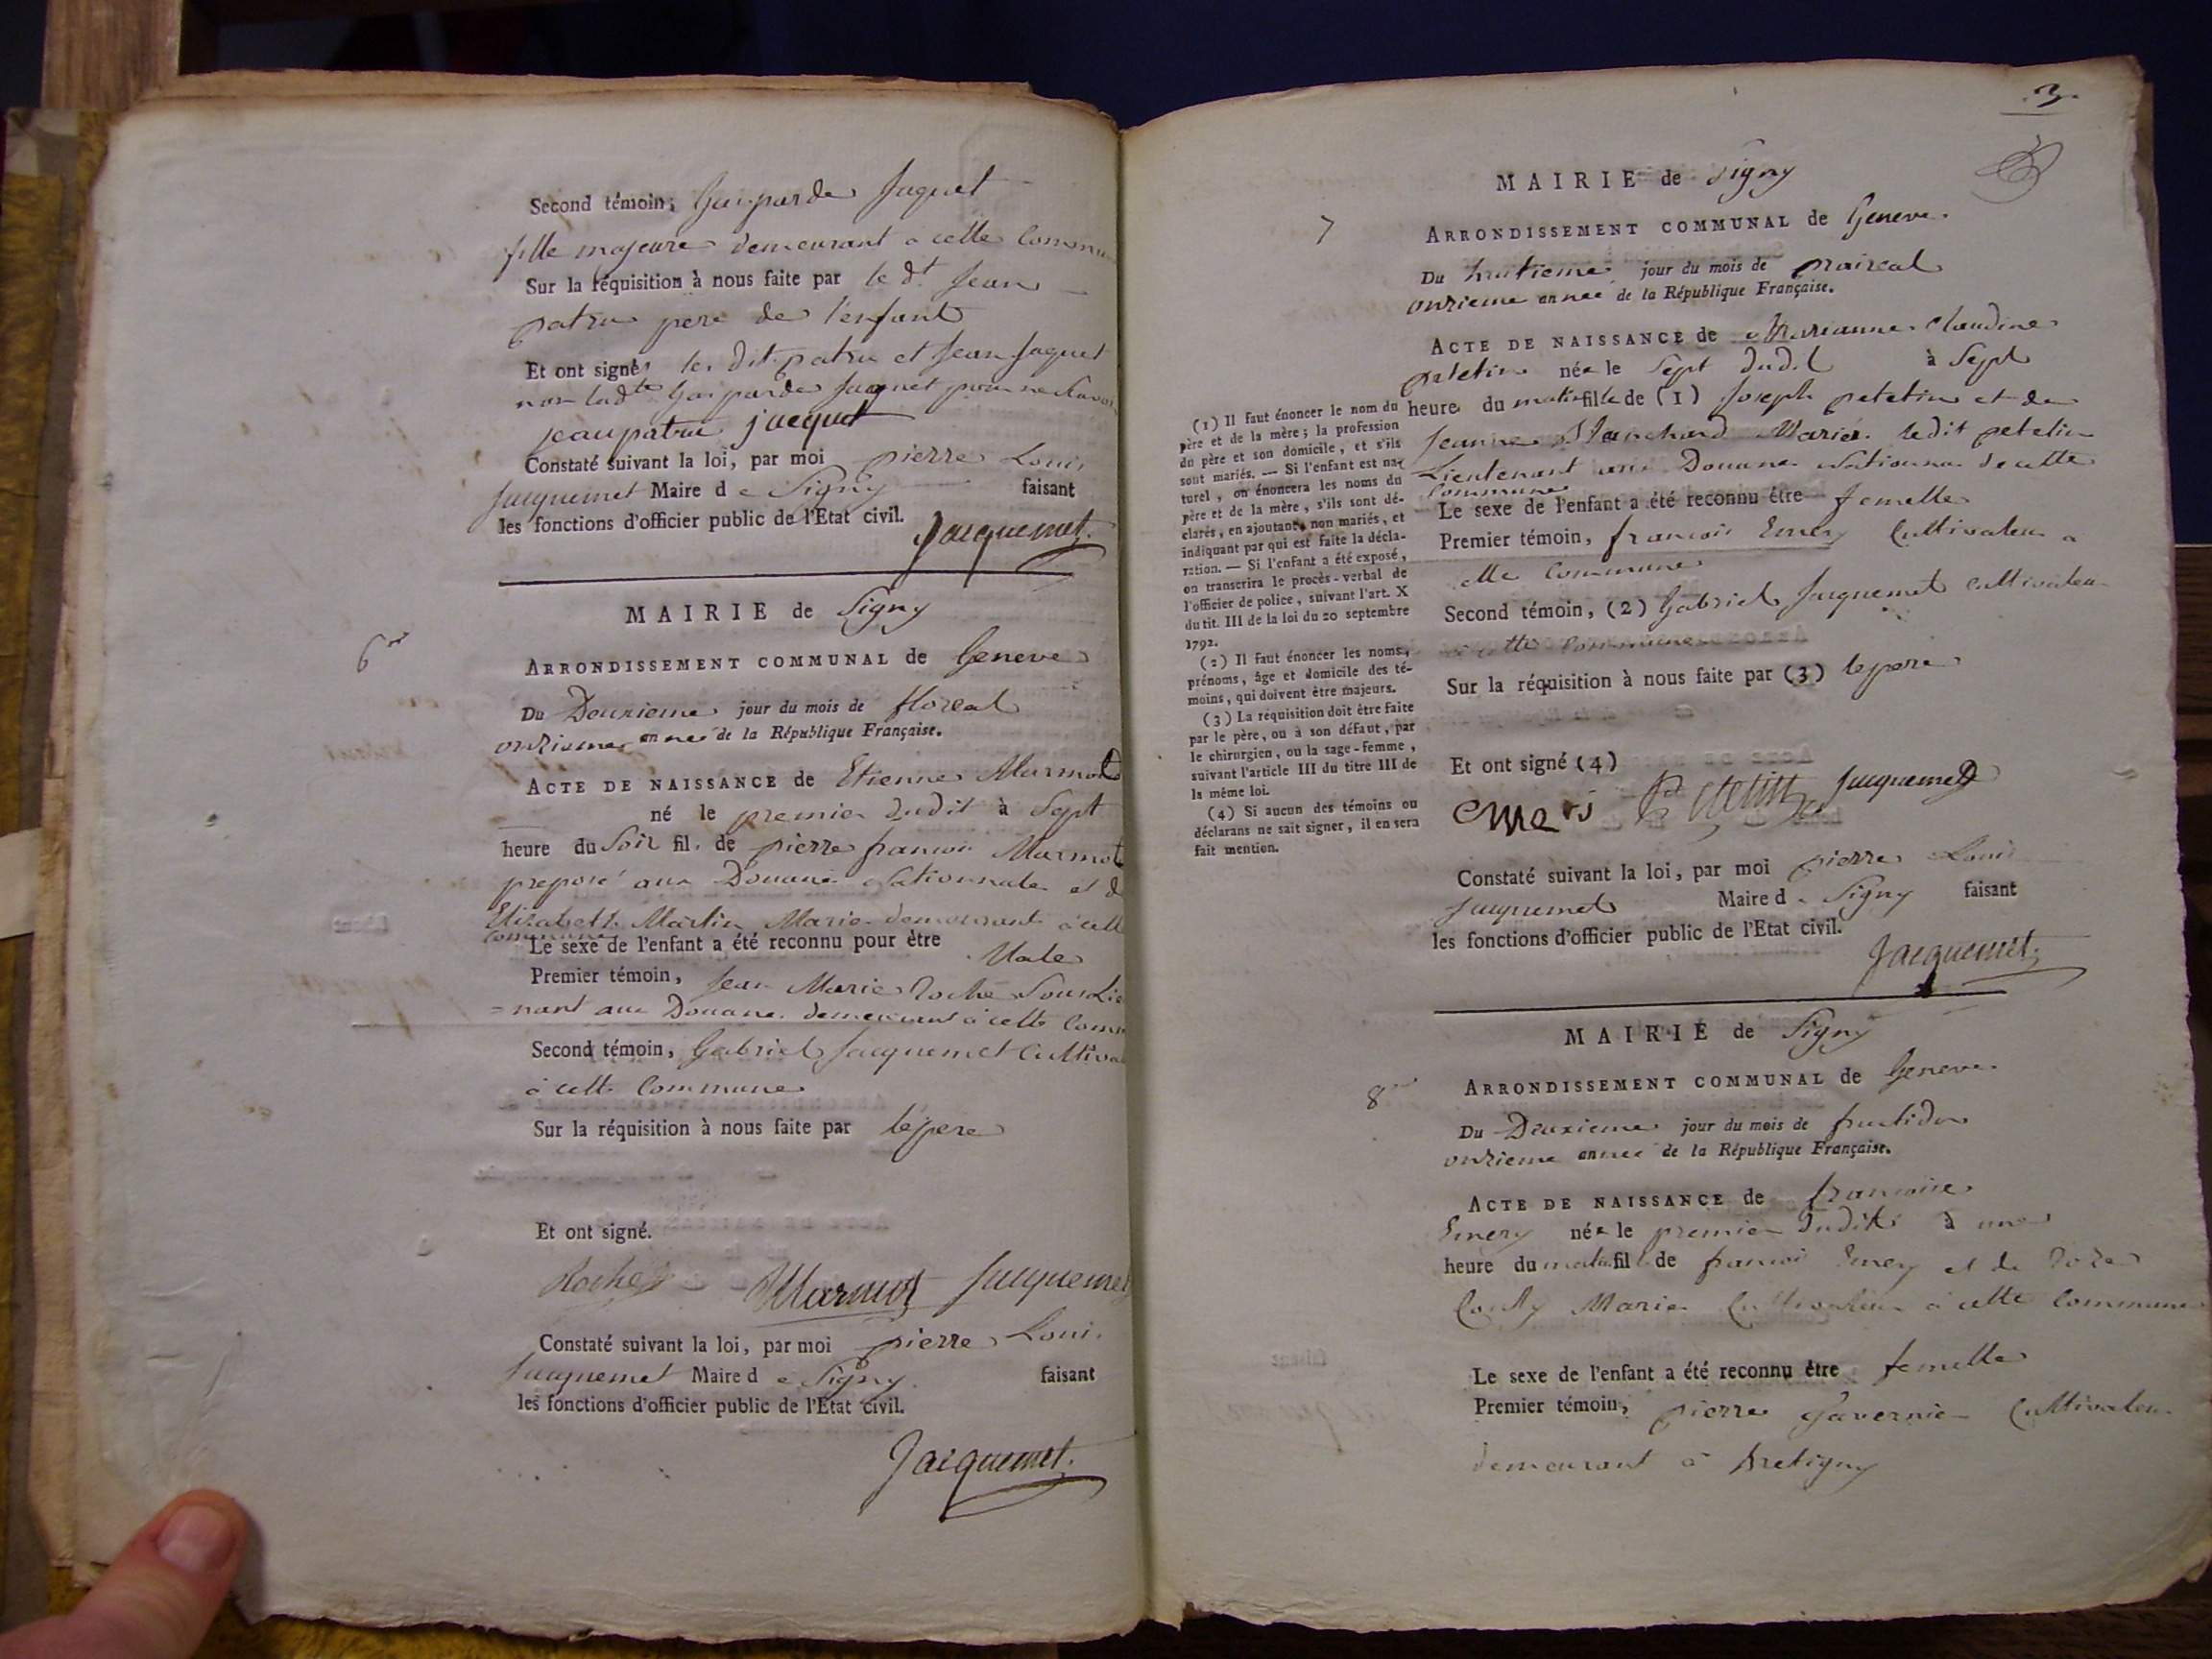 Second témoin, Gasparde Jaquet
fille majeure demeurant à cette Commu
Sur la réquisition à nous faite par le dt Jean
patru pere de l'enfant
Et ont signé les dit patru et Jean Jaquet
non ladte Gasparde Jaquet pour ne Savoir
jean patru jacquet
Constaté suivant la loi, par moi pierre Louis
Jacquemet Maire de Signy faisant
les fonctions d'officier public de l'Etat civil.
Jacquemet
6
MAIRIE de Signy
ARRONDISSEMENT COMMUNAL de Geneve
Du Deuxieme jour du mois de floreal
onzieme année de la République Française.
ACTE DE NAISSANCE de Etienne Marmot
né le premier dudit à Sept
heure du Soir fil. de pierre francois Marmot
preposé aux Douane Nationnale et d
Elizabeth Martin Marié demeurant à cett
commune
Le sexe de l'enfant a été reconnu pour être Male
Premier témoin, Jean Marie Roche Sous Lie
=nant aux Douane demeurant à cette Comm
Second témoin, Gabriel Jacquemet Cultiva
à cette Commune
Sur la réquisition à nous faite par le pere
Et ont signé.
Roche Marmot Jacquemet
Constaté suivant la loi, par moi pierre Louis
Jacquemet Maire de Signy faisant
les fonctions d'officier public de l'Etat civil.
Jacquemet
3.
7
MAIRIE de Signy
ARRONDISSEMENT COMMUNAL de Geneve
Du huitieme jour du mois de praireal
onzieme année de la République Française.
ACTE DE NAISSANCE de Marianne Claudine
petetin née le Sept dudit à Sept
heure du matin fille de (1) Joseph petetin et de
Jeanne Blanchard Mariés ledit petetin
Lieutenant aux Douane Nationna de cette
Commune
Le sexe de l'enfant a été reconnu être femelle
Premier témoin, francois Emery Cultivateur a
cette Commune
Second témoin, (2) Gabriel Jacquemet cultivateur
a cette Commune
Sur la réquisition à nous faite par (3) le pere
Et ont signé (4)
Emeri Petetin Jacquemet
Constaté suivant la loi, par moi pierre Louis
Jacquemet Maire de Signy faisant
les fonctions d'officier public de l'Etat civil.
Jacquemet
(1) Il faut énoncer le nom du
père et de la mère; la profession
du père et son domicile, et s'ils
sont mariés. — Si l'enfant est na-
turel, on énoncera les noms du
père et de la mère, s'ils sont dé-
clarés, en ajoutant, non mariés, et
indiquant par qui est faite la décla-
ration. — Si l'enfant a été exposé,
on transcrira le procès-verbal de
l'officier de police, suivant l'art. X
du tit. III de la loi du 20 septembre
1792.
(2) Il faut énoncer les noms,
prénoms, âge et domicile des té-
moins, qui doivent être majeurs.
(3) La réquisition doit être faite
par le père, ou à son défaut, par
le chirurgien, ou la sage-femme,
suivant l'article III du titre III de
la même loi.
(4) Si aucun des témoins ou
déclarans ne sait signer, il en sera
fait mention.
8
MAIRIE de Signy
ARRONDISSEMENT COMMUNAL de Geneve
Du Deuxieme jour du mois de fructidor
onzieme année de la République Française.
ACTE DE NAISSANCE de francoise
Emery née le premier dudit à une
heure du matin fil de francois Emery et de Roze
Marié Cultivateur à cette Commune
Le sexe de l'enfant a été reconnu être femelle
Premier témoin, pierre Gavernie Cultivateur
demeurant à Bretigny